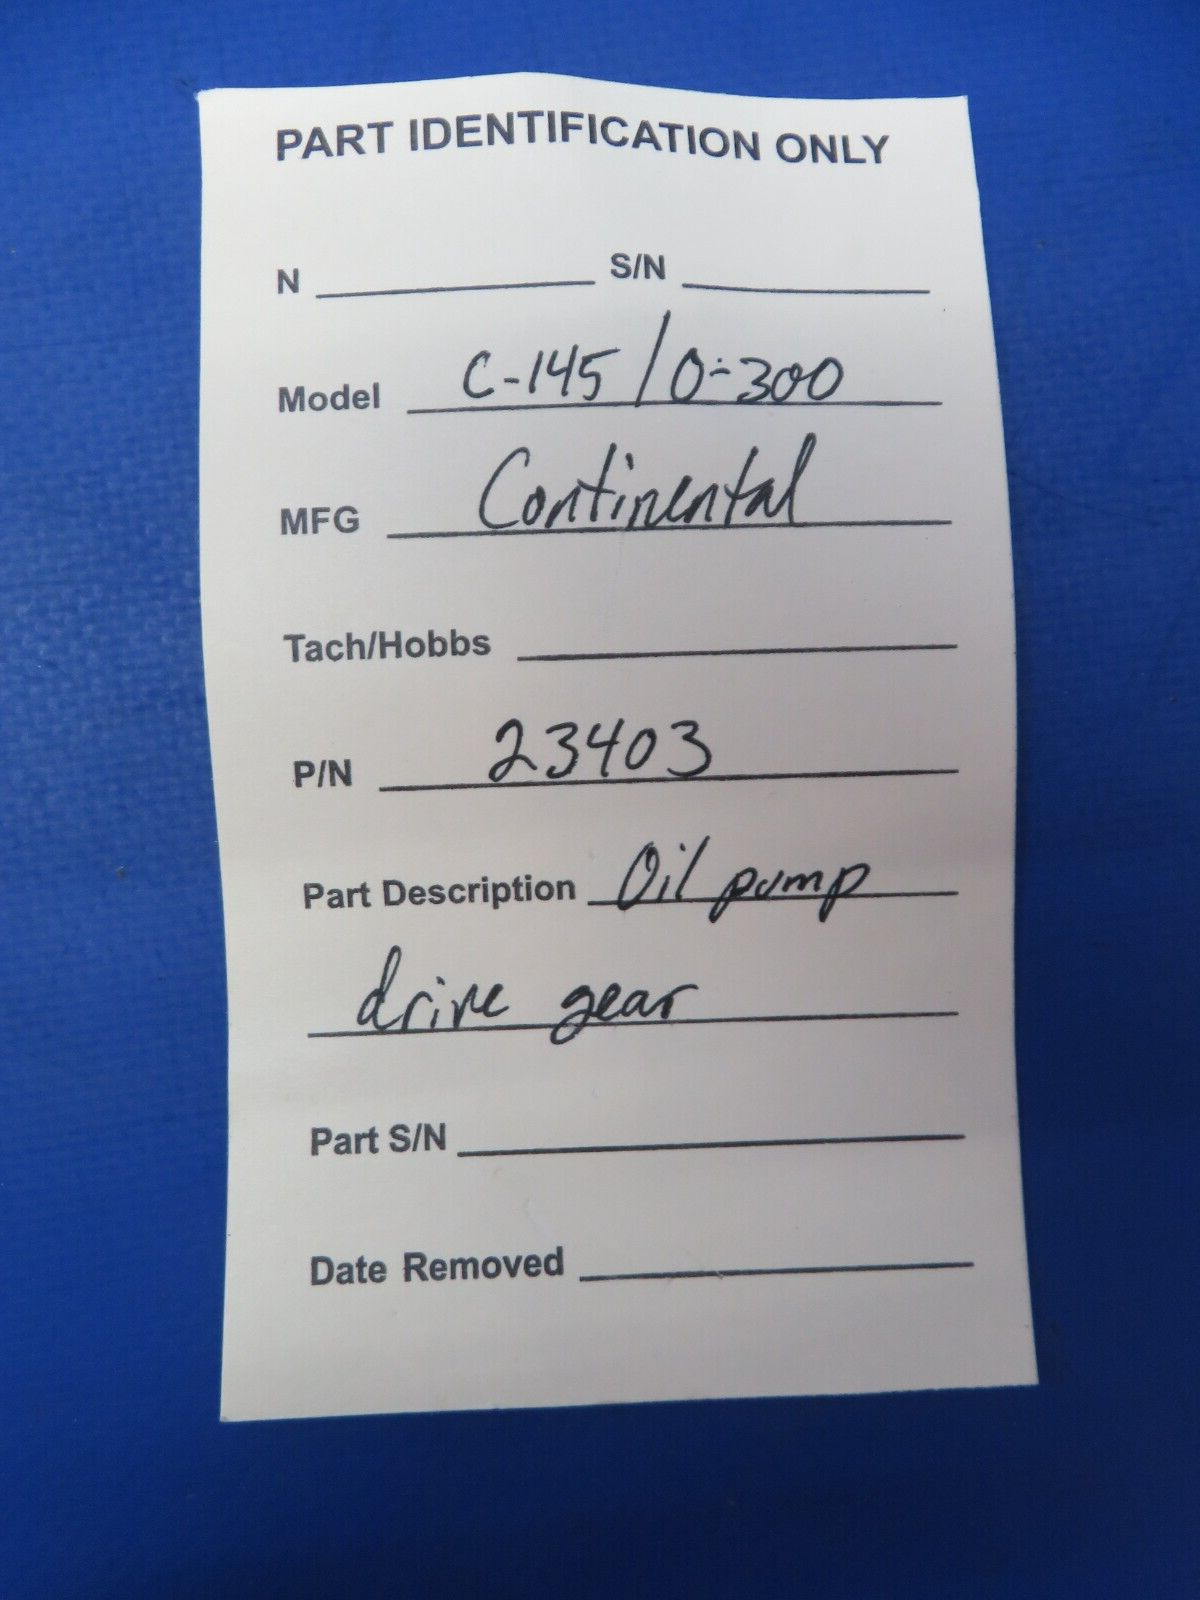 PART IDENTIFICATION ONLY
N S/N
Model C-145/O-300
MFG Continental
Tach/Hobbs
P/N 23403
Part Description Oil pump
drive gear
Part S/N
Date Removed